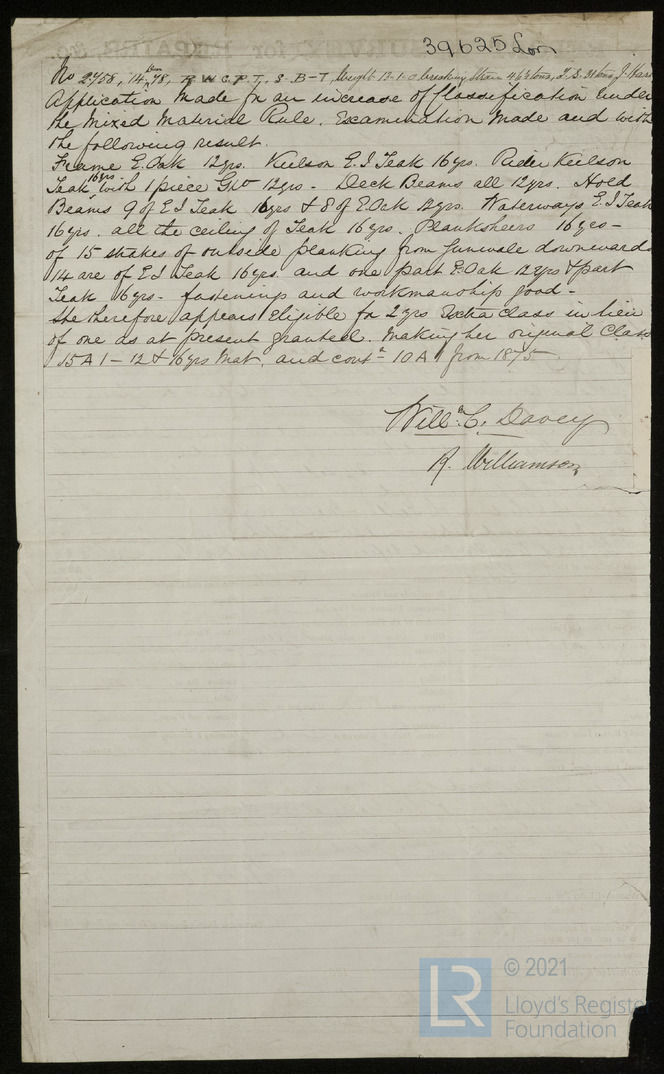 39625 Lon
No 2758, 14, 78, R.W.C.P.T, S-B-T, Weight 13-1-0 breaking strain 46¾ tons, T.S. 31 tons, J. Har
Application made for an increase of Classification under
the Mixed Material Rule. Examination made and with
the following result.
Frame E. Oak 12yrs. Keelson E.I Teak 16yrs. Rider Keelson
Teak 16yrs with 1 piece 12yrs - Deck Beams all 12yrs. Hold
Beams 9 of E I Teak 16yrs & 8 of E Oak 12yrs. Waterways E.I Teak
16yrs. all the ceiling of Teak 16yrs. Planksheers 16yrs -
of 15 strakes of outside planking from Gunwale downward
14 are of E I Teak 16yrs. and one part E. Oak 12yrs & part
Teak 16yrs - fastenings and workmanship good -
She therefore appears Eligible for 2yrs Extra Class in lieu
of one as at present granted. Making her original Class
15 A 1 - 12 & 16yrs Mat, and contn 10 A 1 from 1875
Willm C. Davey
R. Williamson
LR
© 2021
Lloyd's Registe
Foundation